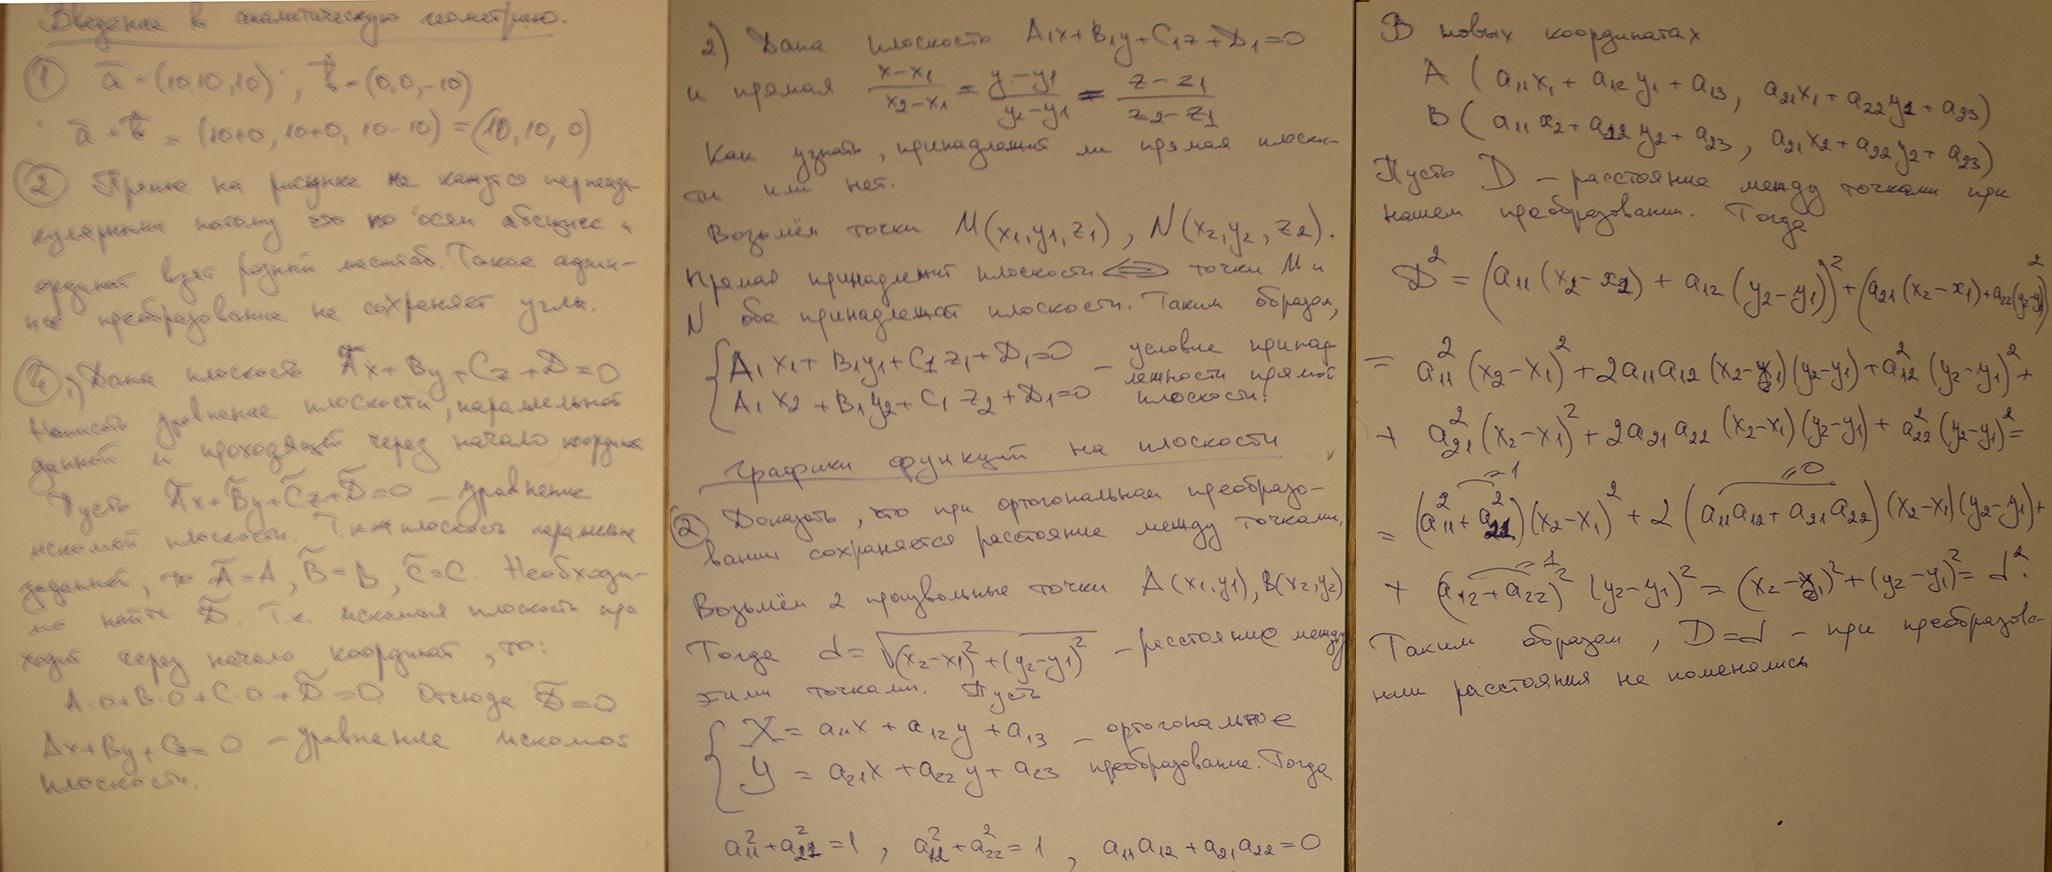 Введение в аналитическую геометрию.
① a̅ = (10,10,10) ; b̅ = (0,0,-10)
a̅ + b̅ = (10+0, 10+0, 10-10) = (10, 10, 0)
② Прямые на рисунке не кажутся перпенди-
кулярными потому что по осям абсцисс и
ординат взят разный масштаб. Такое аффин-
ное преобразование не сохраняет углы.
④ 1) Дана плоскость Ax+By+Cz+D=0
Написать уравнение плоскости, параллельной
данной и проходящей через начало координат
Пусть A̅x+B̅y+C̅z+D̅=0 – уравнение
искомой плоскости. Т.к. плоскость параллельна
заданной, то A̅=A, B̅=B, C̅=C. Необходи-
мо найти D̅. Т.к. искомая плоскость про
ходит через начало координат, то:
A·0+B·0+C·0+D̅=0 Отсюда D̅=0
Ax+By+Cz=0 – уравнение искомой
плоскости.
2) Дана плоскость A₁x+B₁y+C₁z+D₁=0
и прямая (x-x₁)/(x₂-x₁) = (y-y₁)/(y₂-y₁) = (z-z₁)/(z₂-z₁)
Как узнать, принадлежит ли прямая плоскос-
ти или нет.
Возьмём точки M(x₁,y₁,z₁), N(x₂,y₂,z₂).
Прямая принадлежит плоскости ⟺ точки M и
N обе принадлежат плоскости. Таким образом,
{ A₁x₁+B₁y₁+C₁z₁+D₁=0 – условие принад-
A₁x₂+B₁y₂+C₁z₂+D₁=0 лежности прямой
плоскости.
Графики функций на плоскости
② Доказать, что при ортогональном преобразо-
вании сохраняется расстояние между точками.
Возьмём 2 произвольные точки A(x₁,y₁), B(x₂,y₂)
Тогда d=√((x₂-x₁)²+(y₂-y₁)²) – расстояние между
этими точками. Пусть
{ X = a₁₁x + a₁₂y + a₁₃ – ортогональное
Y = a₂₁x + a₂₂y + a₂₃ преобразование. Тогда
a₁₁²+a₂₁²=1, a₁₂²+a₂₂²=1, a₁₁a₁₂+a₂₁a₂₂=0
В новых координатах
A (a₁₁x₁ + a₁₂y₁ + a₁₃, a₂₁x₁ + a₂₂y₁ + a₂₃)
B (a₁₁x₂ + a₂₂y₂ + a₂₃, a₂₁x₂ + a₂₂y₂ + a₂₃)
Пусть D – расстояние между точками при
нашем преобразовании. Тогда
D² = (a₁₁(x₂-x₁) + a₁₂(y₂-y₁))² + (a₂₁(x₂-x₁)+a₂₂(y₂-y₁))²
= a₁₁²(x₂-x₁)² + 2a₁₁a₁₂(x₂-x₁)(y₂-y₁)+a₁₂²(y₂-y₁)²+
+ a₂₁²(x₂-x₁)²+2a₂₁a₂₂(x₂-x₁)(y₂-y₁)+a₂₂²(y₂-y₁)²=
=1 =0
= (a₁₁²+a₂₁²)(x₂-x₁)²+2(a₁₁a₁₂+a₂₁a₂₂)(x₂-x₁)(y₂-y₁)+
=1
+ (a₁₂+a₂₂)²(y₂-y₁)² = (x₂-x₁)²+(y₂-y₁)²=d².
Таким образом, D=d – при преобразова-
нии расстояния не поменялись